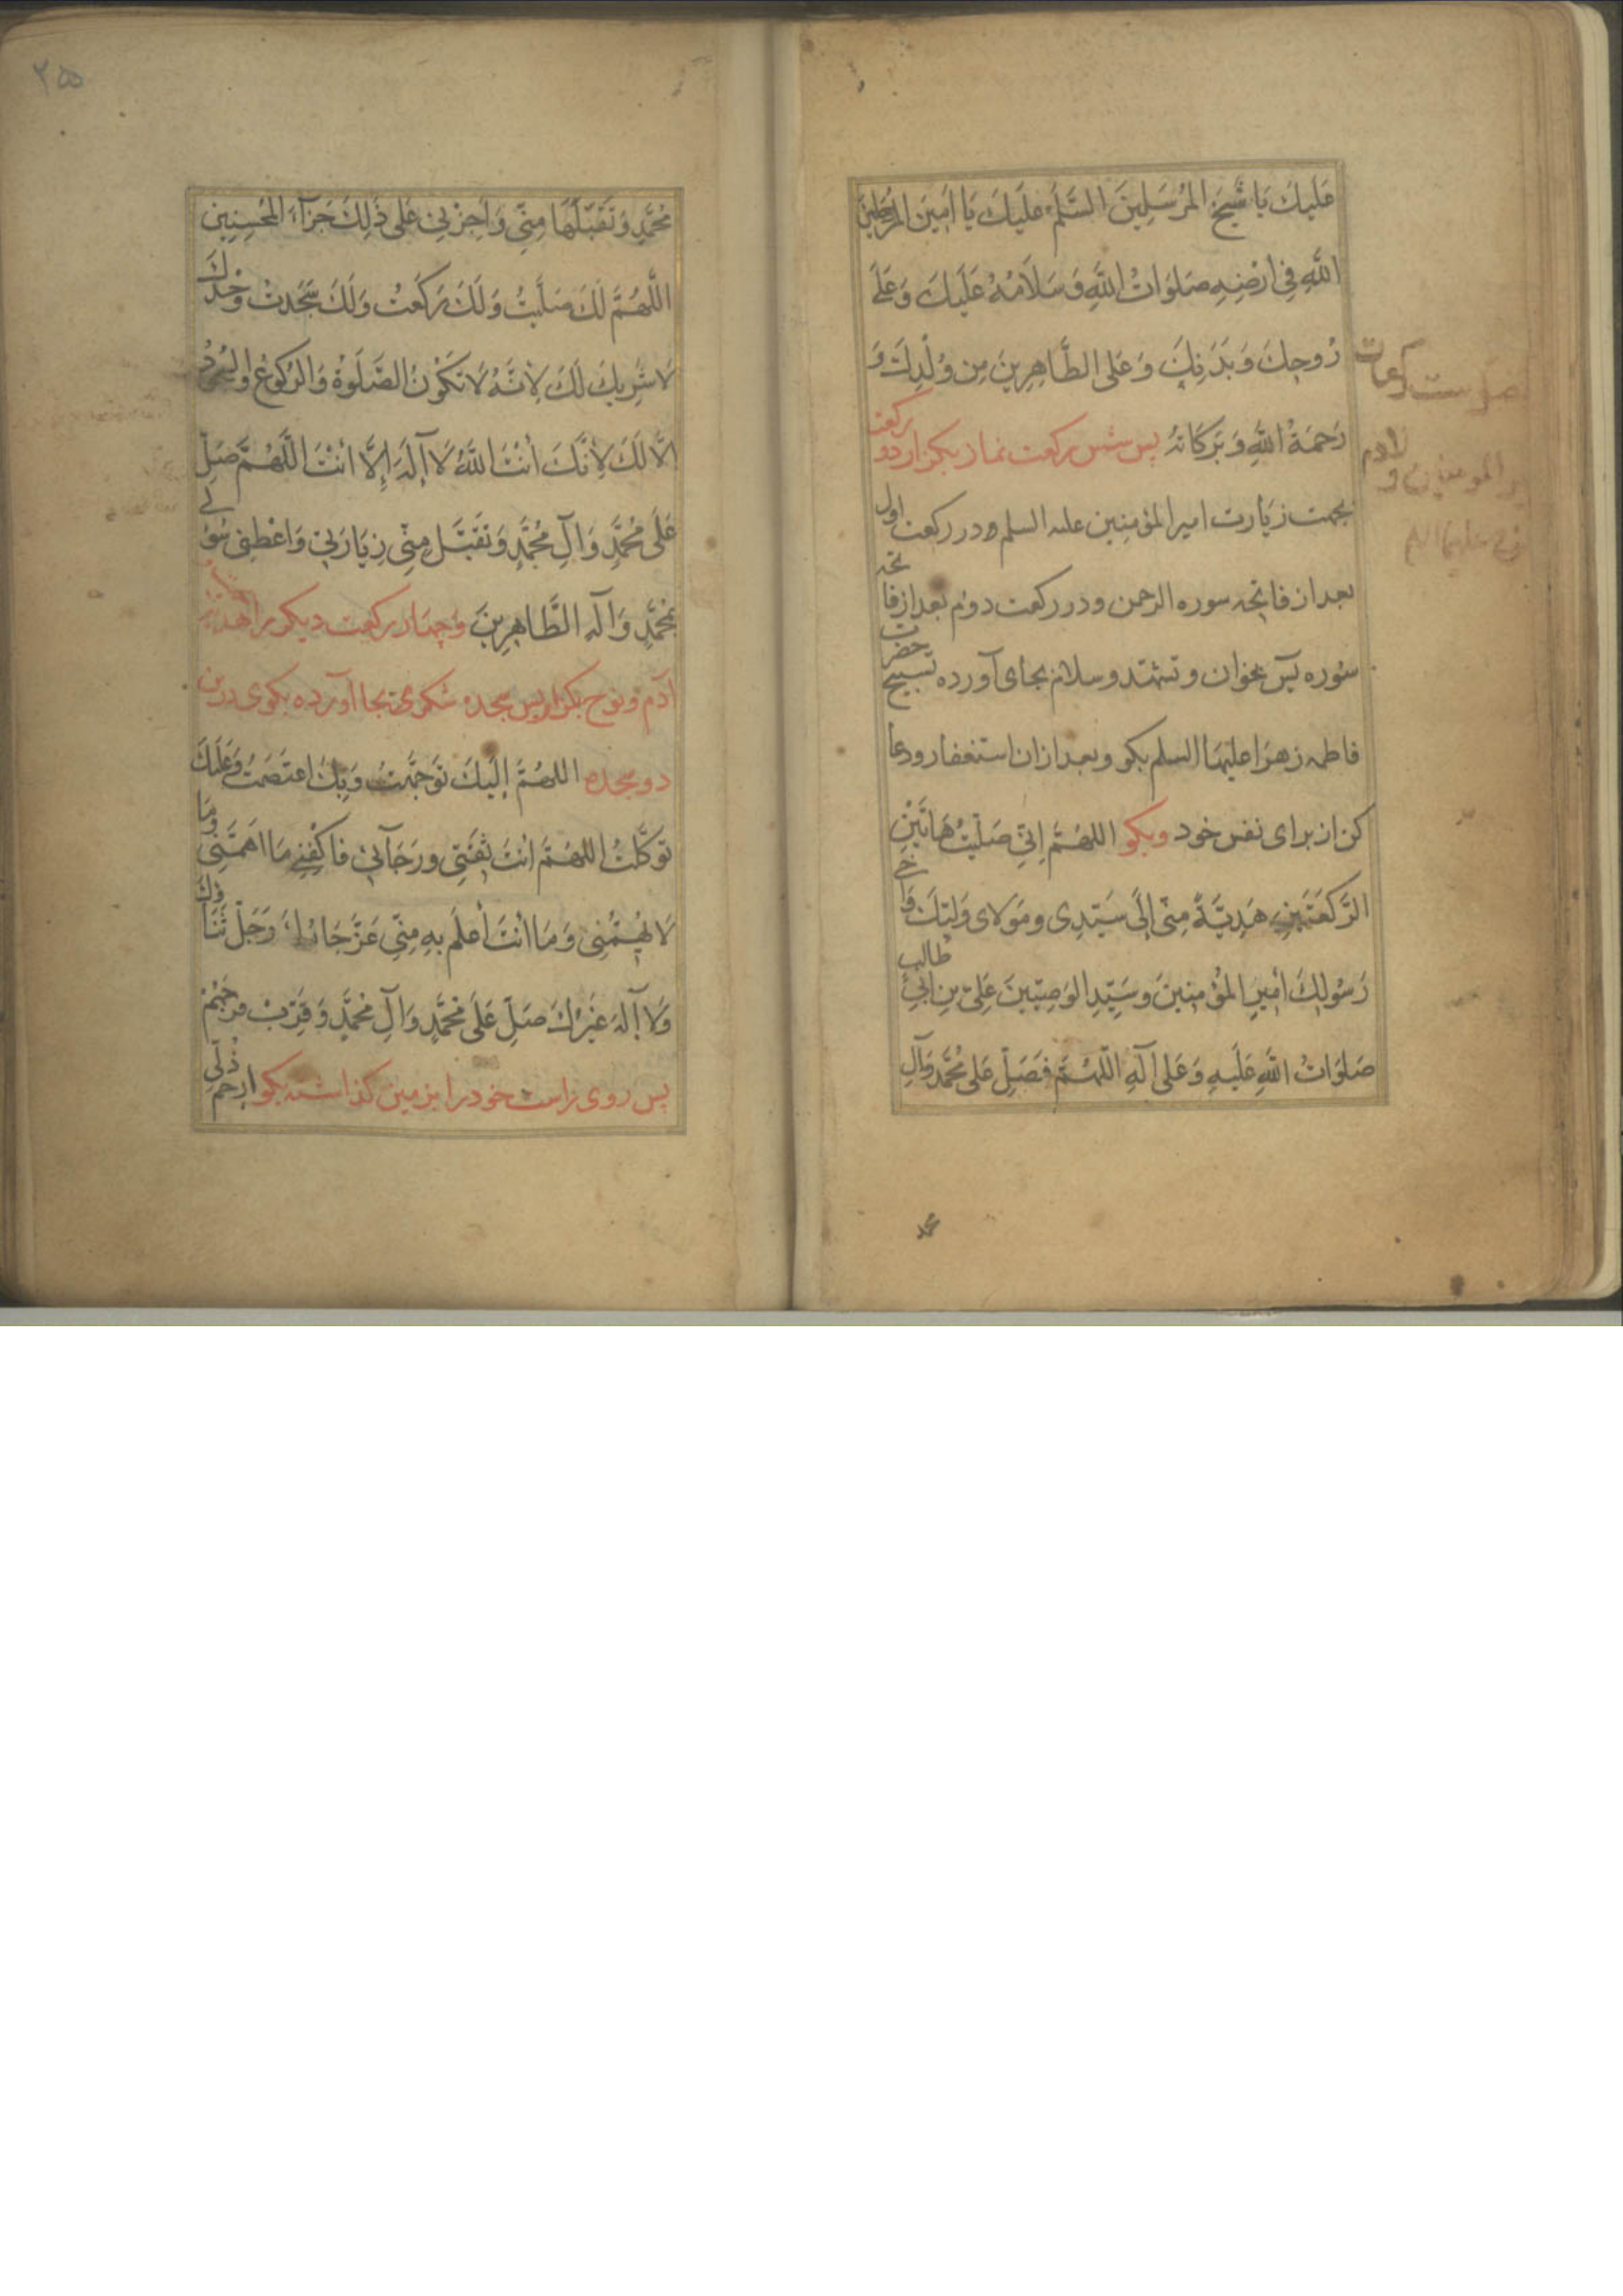 عَلَيكَ يَا شَيخَ المُرسَلِينَ السَّلَمُ عَلَيكَ يَا اَمِينَ
اللَّهِ فِي اَرضِهِ صَلَوَاتُ اللَّهِ وَسَلَامُهُ عَلَيكَ وَعَلَى
رُوحِكَ وَبَدَنِكَ وَعَلَى الطَّاهِرِينَ مِن وُلْدِكَ وَ
رَحمَةُ اللَّهِ وَبَرَكَاتُهُ پس شش رکعت نماز بکزار دو رکعت
بجهت زیارت امیر المؤمنین علیه السلم و در رکعت اول
بعد از فاتحه سوره الرحمن و در رکعت دوم بعد از فاتحه
سوره یس بخوان و تشهد و سلام بجای آورده تسبیح حضرت
فاطمه زهرا علیها السلم بکو و بعد ازان استغفار و دعا
کن از برای نفس خود وبکو اللهُمَّ اِنّي صَلَّيتُ هَاتَيْنِ
الرَّكعَتَينِ هَدِيَّةً مِنّي اِلَى سَيِّدِى ومَولَاى وَلِيِّكَ وَاَخِي
رَسُولِكَ أَمِيرِ المُؤمِنِينَ وسَيِّدِ الوَصِيّينَ عَلِيّ بنِ اَبِي طالب
صَلَوَاتُ اللَّهِ عَلَيهِ وَعَلى آلِهِ اللّهُمَّ فَصَلِّ عَلى مُحَمَّدٍ وَآلِ
رکعات
محمد
۲۵
مُحَمَّدٍ وَتَقَبَّلهَا مِنّي وَاَجزِنِي عَلى ذَلِكَ جَزَآءَ المُحسِنِين
اللَّهُمَّ لَكَ صَلَّيتُ وَلَكَ رَكَعتُ وَلَكَ سَجَدتُ وَحدَكَ
لَا شَرِيكَ لَكَ لِاَنَّهُ لَا تَكُونُ الصَّلَوةُ وَالرُّكُوعُ وَالسُّجُودُ
اِلَّا لَكَ لِاَنَّكَ اَنْتَ اللَّهُ لَا آلَهَ اِلَّا اَنْتَ اللَّهُمَّ صَلِّ
عَلَى مُحَمَّدٍ وَآلِ مُحَمَّدٍ وَتَقَبَّل مِنّي زِيَارَتِي وَاعْطِنِي سُؤلِي
بِمُحَمَّدٍ وَآلِهِ الطَّاهِرِينَ و چهار رکعت دیکر برا
آدم و نوح بکزار پس سجده شکر بجا آورده بکوی درین
دو سجده اللهُمَّ اِلَيكَ تَوَجَّهتُ وَبِكَ اعتَصَمتُ وَعَلَيكَ
تَوَكَّلتُ اللهُمَّ اَنتَ ثِقَتِي ورَجَآئِي فَاكفِنِي مَا اَهَمَّنِي وَمَا
لَا يُهِمُّنِي وَمَا اَنتَ اَعلَمُ بِهِ مِنّي عَزَّ جَارُكَ وَجَلَّ ثَنَاؤُكَ
وَلَا آلَهَ غَيرُكَ صَلِّ عَلَى مُحَمَّدٍ وَآلِ مُحَمَّدٍ وَقَرِّب فَرَجَهُمْ
پس روی راست خود را بزمین کذاشته بکو ارحم ذُلّي